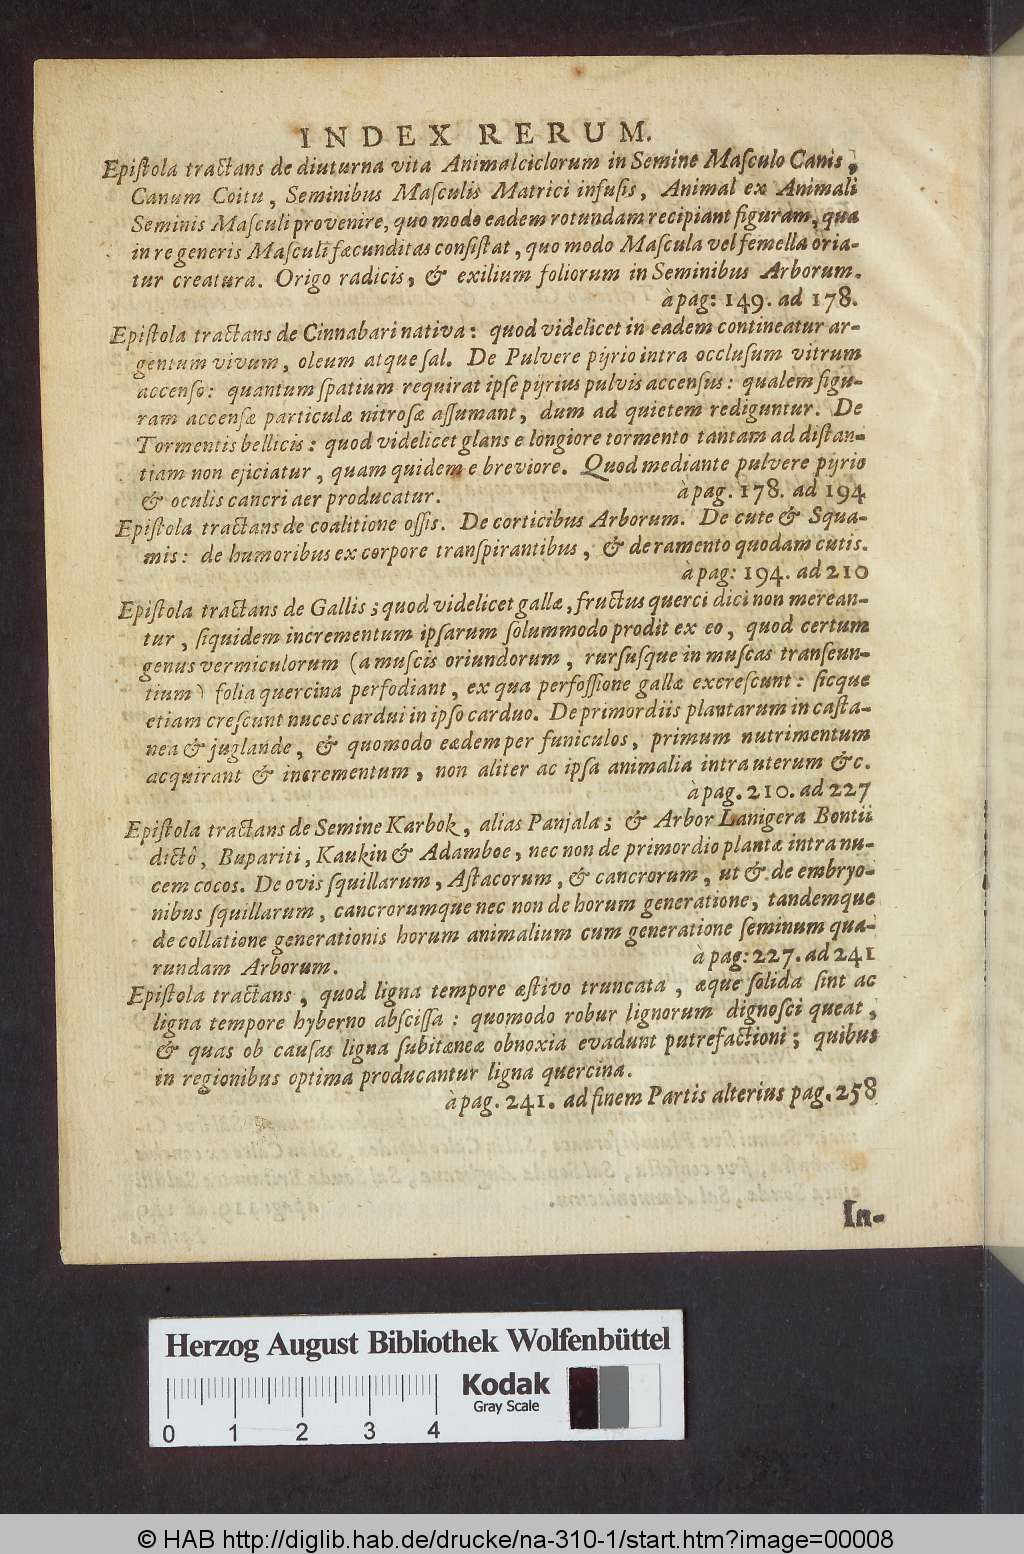 INDEX RERUM.
Epiſtola tractans de diuturna vita Animalciclorum in Semine Maſculo Canis,
Canum Coitu, Seminibus Maſculis Matrici infuſis, Animal ex Animali
Seminis Maſculi provenire, quo modo eadem rotundam recipiant figuram, qua
in re generis Maſculi fæcunditas conſiſtat, quo modo Maſcula vel femella oria-
tur creatura. Origo radicis, & exilium foliorum in Seminibus Arborum.
à pag: 149. ad 178.
Epiſtola tractans de Cinnabari nativa: quod videlicet in eadem contineatur ar-
gentum vivum, oleum atque ſal. De Pulvere pijrio intra occluſum vitrum
accenſo: quantum ſpatium requirat ipſe pijrius pulvis accenſus: qualem figu-
ram accenſæ particulæ nitroſæ aſſumant, dum ad quietem rediguntur. De
Tormentis bellicis: quod videlicet glans e longiore tormento tantam ad diſtan-
tiam non ejiciatur, quam quidem e breviore. Quod mediante pulvere pijrio
& oculis cancri aer producatur. à pag. 178. ad 194
Epiſtola tractans de coalitione oſſis. De corticibus Arborum. De cute & Squa-
mis: de humoribus ex corpore tranſpirantibus, & de ramento quodam cutis.
à pag: 194. ad 210
Epiſtola tractans de Gallis; quod videlicet gallæ, fructus querci dici non merean-
tur, ſiquidem incrementum ipſarum ſolummodo prodit ex eo, quod certum
genus vermiculorum (a muſcis oriundorum, rurſusque in muſcas tranſeun-
tium) folia quercina perfodiant, ex qua perfoſſione gallæ excreſcunt: ſicque
etiam creſcunt nuces cardui in ipſo carduo. De primordiis plantarum in caſta-
nea & juglande, & quomodo eædem per funiculos, primum nutrimentum
acquirant & incrementum, non aliter ac ipſa animalia intra uterum &c.
à pag. 210. ad 227
Epiſtola tractans de Semine Karbok, alias Panjala; & Arbor Lanigera Bontii
dictô, Bupariti, Kaukin & Adamboe, nec non de primordio plantæ intra nu-
cem cocos. De ovis ſquillarum, Aſtacorum, & cancrorum, ut & de embryo-
nibus ſquillarum, cancrorumque nec non de horum generatione, tandemque
de collatione generationis horum animalium cum generatione ſeminum qua-
rundam Arborum. à pag: 227. ad 241
Epiſtola tractans, quod ligna tempore æſtivo truncata, æque ſolida ſint ac
ligna tempore hyberno abſciſſa: quomodo robur lignorum dignoſci queat,
& quas ob cauſas ligna ſubitaneæ obnoxia evadunt putrefactioni; quibus
in regionibus optima producantur ligna quercina.
à pag. 241. ad finem Partis alterius pag. 258
In-
Herzog August Bibliothek Wolfenbüttel
Kodak
Gray Scale
0 1 2 3 4
© HAB http://diglib.hab.de/drucke/na-310-1/start.htm?image=00008